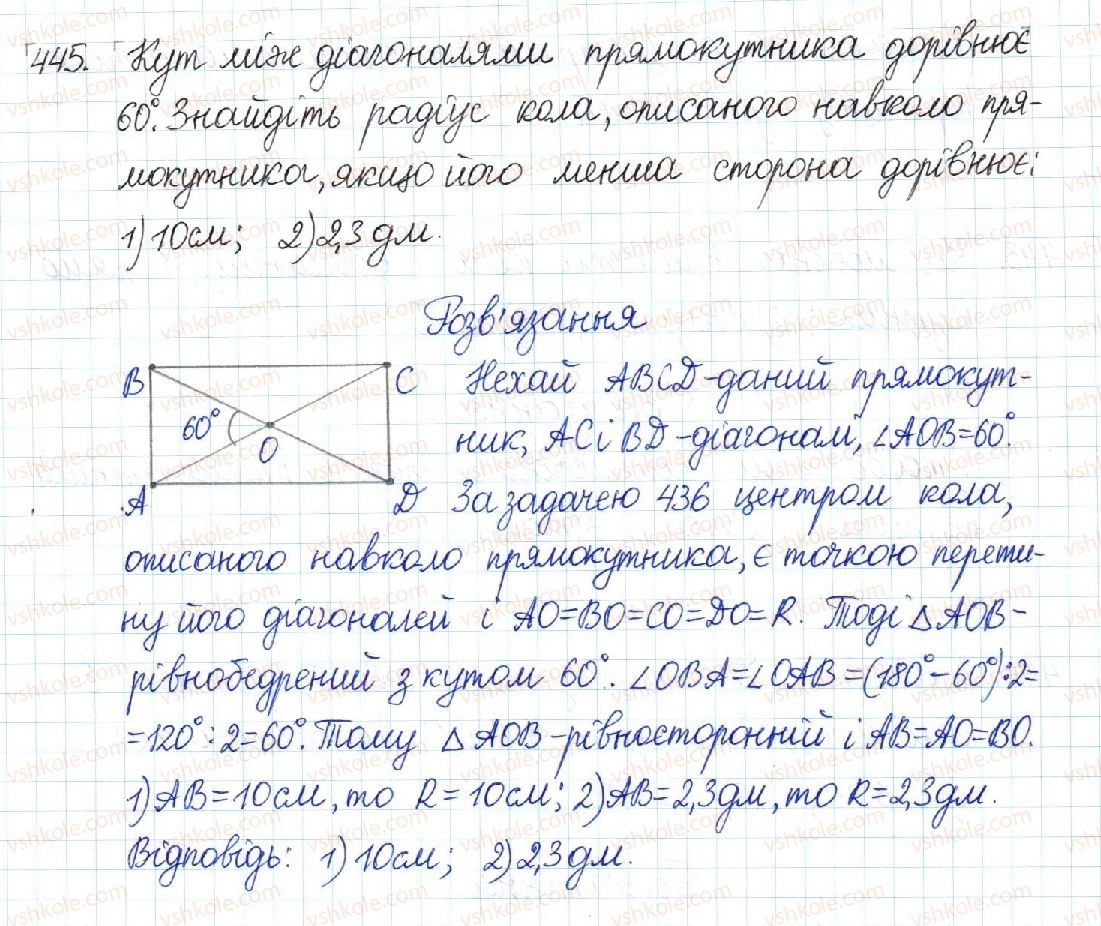 445. Кут між діагоналями прямокутника дорівнює
60°. Знайдіть радіус кола, описаного навколо пря-
мокутника, якщо його менша сторона дорівнює:
1) 10 см; 2) 2,3 дм.
Розв'язання
B C Нехай ABCD - даний прямокут-
60° O ник, AC і BD - діагоналі, ∠AOB = 60°.
A D За задачею 436 центром кола,
описаного навколо прямокутника, є точкою перети-
ну його діагоналей і AO = BO = CO = DO = R. Тоді △AOB -
рівнобедрений з кутом 60°. ∠OBA = ∠OAB = (180° - 60°) : 2 =
= 120° : 2 = 60°. Тому △AOB - рівносторонній і AB = AO = BO.
1) AB = 10 см, то R = 10 см; 2) AB = 2,3 дм, то R = 2,3 дм.
Відповідь: 1) 10 см; 2) 2,3 дм.
vshkole.com